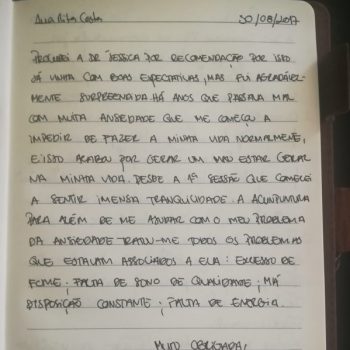 Ana Rita Costa 30/08/2017
PROCUREI A DRª JÉSSICA POR RECOMENDAÇÃO POR ISSO
JÁ VINHA COM BOAS EXPECTATIVAS, MAS FUI AGRADÁVEL-
MENTE SURPREENDIDA. HÁ ANOS QUE PASSAVA MAL
COM MUITA ANSIEDADE QUE ME COMEÇOU A
IMPEDIR DE FAZER A MINHA VIDA NORMALMENTE,
E ISSO ACABOU POR GERAR UM MAU ESTAR GERAL
NA MINHA VIDA. DESDE A 1ª SESSÃO QUE COMECEI
A SENTIR IMENSA TRANQUILIDADE. A ACUPUNTURA
PARA ALÉM DE ME AJUDAR COM O MEU PROBLEMA
DA ANSIEDADE TRATOU-ME TODOS OS PROBLEMAS
QUE ESTAVAM ASSOCIADOS A ELA: EXCESSO DE
FOME; FALTA DE SONO DE QUALIDADE; MÁ
DISPOSIÇÃO CONSTANTE; FALTA DE ENERGIA.
MUITO OBRIGADA!